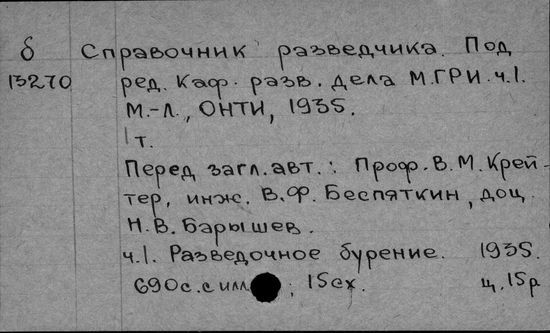 б Справочник разведчика. Под
13270 ред. Каф. разв. дела МГРИ. ч.1.
М.-Л., ОНТИ, 1935.
1 т.
Перед загл. авт.: Проф. В.М. Крей-
тер, инж. В.Ф. Беспяткин, доц.
Н.В. Барышев.
ч.1. Разведочное бурение. 1935.
690с. с илл ; 15сх. ц. 15р